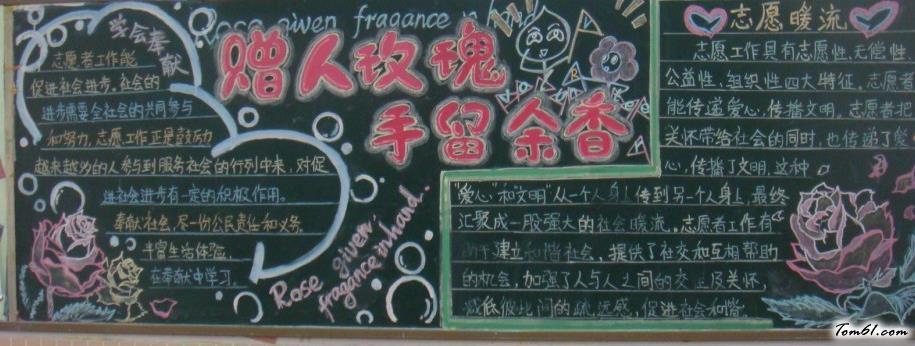 学会奉献
志愿者工作能
促进社会进步。社会的
进步需要全社会的共同参与
和努力。志愿工作正是鼓励
越来越多的人参与到服务社会的行列中来，对促
进社会进步有一定的积极作用。
奉献社会，尽一份公民责任和义务。
丰富生活体验，
在奉献中学习。
Rose given fragance in hand
赠人玫瑰
手留余香
Rose given,
fragance in hand.
志愿暖流
志愿工作具有志愿性、无偿性、
公益性、组织性四大特征。志愿者
能传递爱心，传播文明，志愿者把
关怀带给社会的同时，也传递了爱
心，传播了文明，这种
"爱心"和"文明"从一个人身上传到另一个人身上，最终
汇聚成一股强大的社会暖流。志愿者工作有
助于建立和谐社会，提供了社交和互相帮助
的机会，加强了人与人之间的交往及关怀，
减低彼此间的疏远感，促进社会和谐。
Tom61.com